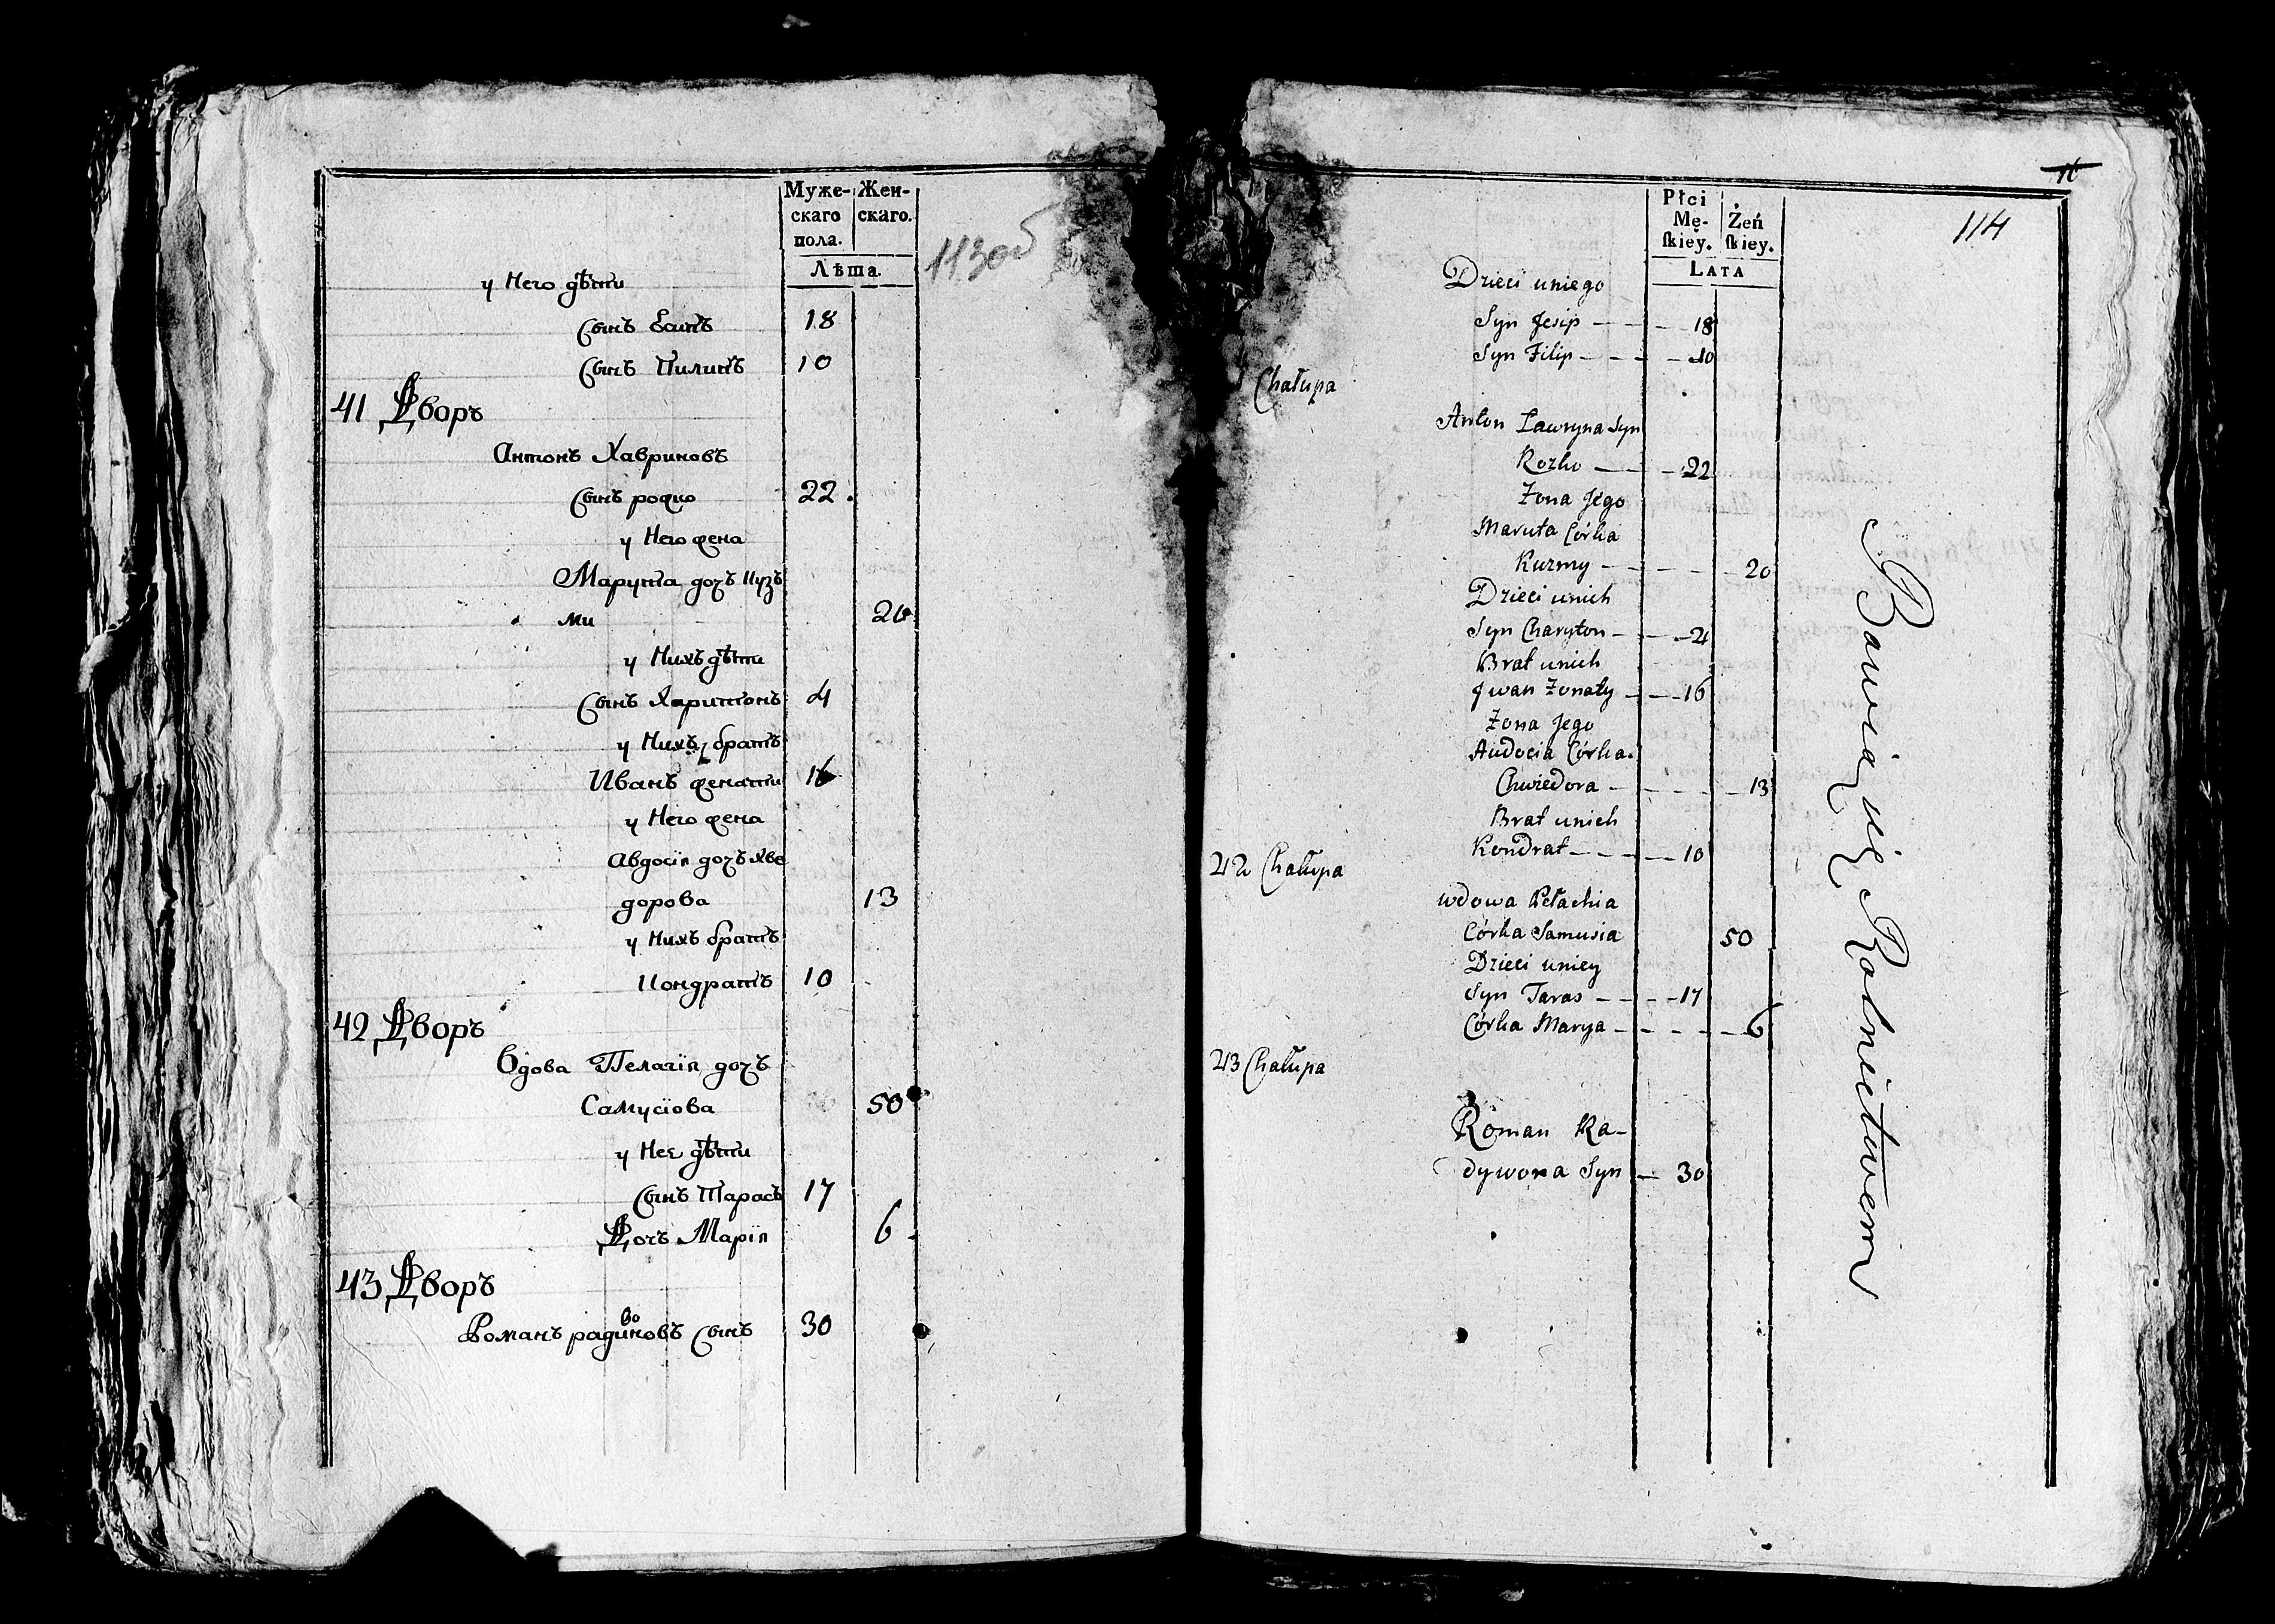 Муже-
скаго
пола.
Жен-
скаго.
Лѣта.
113об
у Него дѣти
сынъ Есипъ 18
сынъ Пилипъ 10
41 Дворъ
Антонъ Хавриновъ
сынъ рожко 22
у Него жена
Марута дочъ Куз
ми 20
у Нихъ дѣти
сынъ Харитонъ 4
у Нихъ братъ
Иванъ женати 16
у Него жена
Авдосія дочъ Хве
дорова 13
у Нихъ братъ
Кондратъ 10
42 Дворъ
Вдова Пелагія дочъ
Самусіова 50
у Неє дѣти
сынъ Тарасъ 17
Дочъ Марія 6
43 Дворъ
Романъ радивоновъ сынъ 30
11
114
Płci
Mę-
skiey.
Żeń
skiey.
LATA
Dzieci uniego
Syn Jesip 18
Syn Filip 10
Chałupa
Anton Ławryna Syn
Rozko 22
Żona Jego
Maruta Córka
Kuzmy 20
Dzieci unich
Syn Charyton 4
Brat unich
Jwan Żonaty 16
Żona Jego
Audocia Córka
Chwiedora 13
Brat unich
Kondrat 10
42 Chałupa
wdowa Pełachia
Córka Samusia 50
Dzieci uniey
Syn Taras 17
Córka Marya 6
43 Chałupa
Roman Ra-
dywona Syn 30
Bawią się Rolnictwem